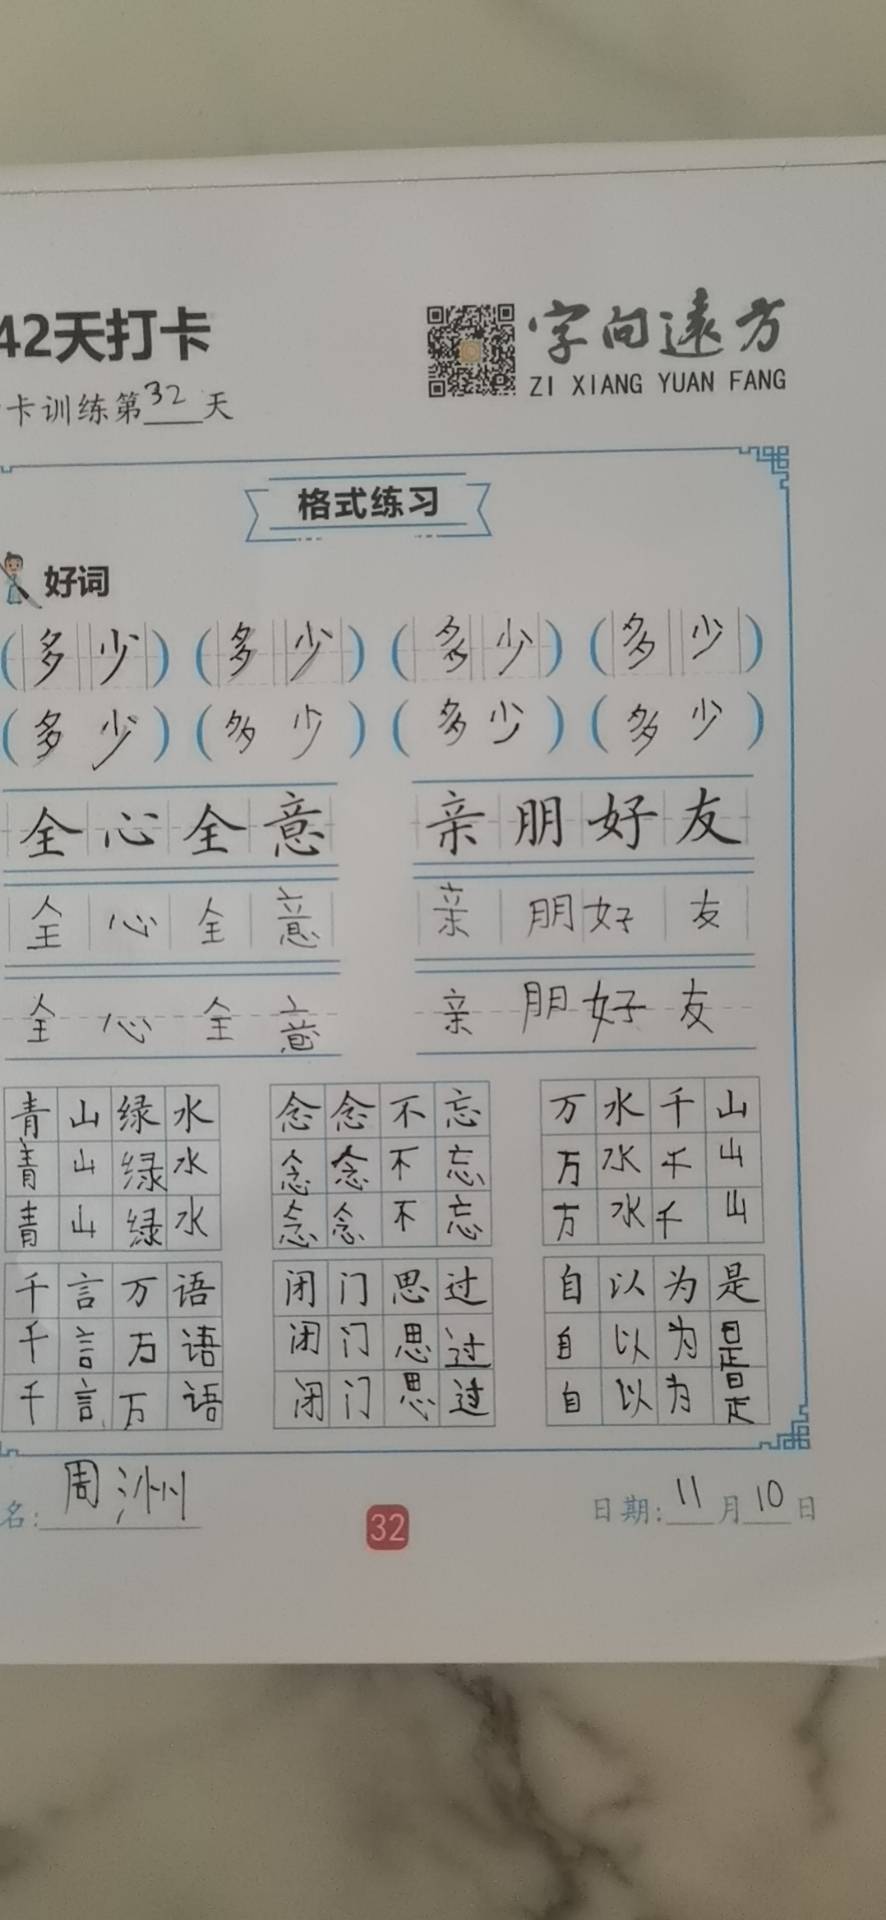 42天打卡
字向遠方
ZI XIANG YUAN FANG
卡训练第32天
格式练习
好词
(多少) (多少) (多少) (多少)
(多少) (多少) (多少) (多少)
全心全意 亲朋好友
全心全意 亲朋好友
全心全意 亲朋好友
青山绿水 念念不忘 万水千山
青山绿水 念念不忘 万水千山
青山绿水 念念不忘 万水千山
千言万语 闭门思过 自以为是
千言万语 闭门思过 自以为是
千言万语 闭门思过 自以为是
名: 周洲 32 日期: 11月10日